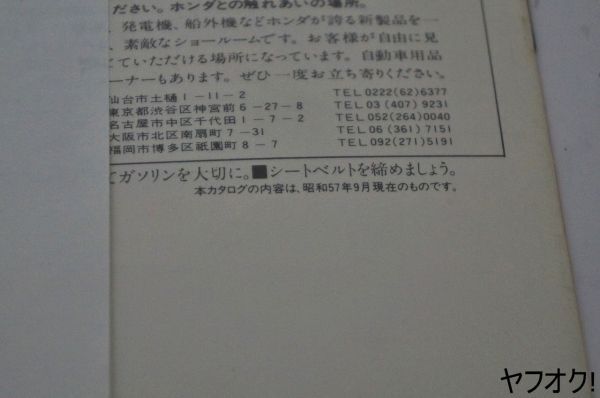 ださい。ホンダとの触れあいの場所。
、発電機、船外機などホンダが誇る新製品を一
、素敵なショールームです。お客様が自由に見
ていただける場所になっています。自動車用品
ーナーもあります。ぜひ一度お立ち寄りください。
仙台市土樋1-11-2 TEL0222(62)6377
東京都渋谷区神宮前6-27-8 TEL03(407)9231
名古屋市中区千代田1-7-2 TEL052(264)0040
大阪市北区南扇町7-31 TEL06(361)7151
福岡市博多区祇園町8-7 TEL092(271)5191
てガソリンを大切に。■シートベルトを締めましょう。
本カタログの内容は、昭和57年9月現在のものです。
ヤフオク!